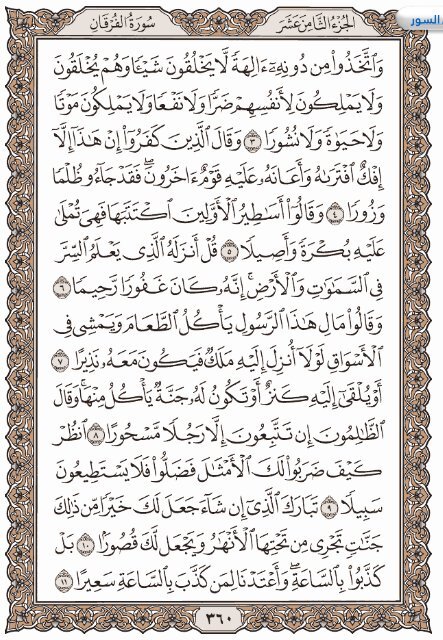 السور
سُورَةُ الفُرْقَانِ
الجُزْءُ الثَّامِنَ عَشَرَ
وَٱتَّخَذُوا۟ مِن دُونِهِۦٓ ءَالِهَةً لَّا يَخْلُقُونَ شَيْـًٔا وَهُمْ يُخْلَقُونَ
وَلَا يَمْلِكُونَ لِأَنفُسِهِمْ ضَرًّا وَلَا نَفْعًا وَلَا يَمْلِكُونَ مَوْتًا
وَلَا حَيَوٰةً وَلَا نُشُورًا ٣ وَقَالَ ٱلَّذِينَ كَفَرُوٓا۟ إِنْ هَـٰذَآ إِلَّآ
إِفْكٌ ٱفْتَرَىٰهُ وَأَعَانَهُۥ عَلَيْهِ قَوْمٌ ءَاخَرُونَ ۖ فَقَدْ جَآءُو ظُلْمًا
وَزُورًا ٤ وَقَالُوٓا۟ أَسَـٰطِيرُ ٱلْأَوَّلِينَ ٱكْتَتَبَهَا فَهِىَ تُمْلَىٰ
عَلَيْهِ بُكْرَةً وَأَصِيلًا ٥ قُلْ أَنزَلَهُ ٱلَّذِى يَعْلَمُ ٱلسِّرَّ
فِى ٱلسَّمَـٰوَٰتِ وَٱلْأَرْضِ ۚ إِنَّهُۥ كَانَ غَفُورًا رَّحِيمًا ٦
وَقَالُوا۟ مَالِ هَـٰذَا ٱلرَّسُولِ يَأْكُلُ ٱلطَّعَامَ وَيَمْشِى فِى
ٱلْأَسْوَاقِ ۙ لَوْلَآ أُنزِلَ إِلَيْهِ مَلَكٌ فَيَكُونَ مَعَهُۥ نَذِيرًا ٧
أَوْ يُلْقَىٰٓ إِلَيْهِ كَنزٌ أَوْ تَكُونُ لَهُۥ جَنَّةٌ يَأْكُلُ مِنْهَا ۚ وَقَالَ
ٱلظَّـٰلِمُونَ إِن تَتَّبِعُونَ إِلَّا رَجُلًا مَّسْحُورًا ٨ ٱنظُرْ
كَيْفَ ضَرَبُوا۟ لَكَ ٱلْأَمْثَـٰلَ فَضَلُّوا۟ فَلَا يَسْتَطِيعُونَ
سَبِيلًا ٩ تَبَارَكَ ٱلَّذِىٓ إِن شَآءَ جَعَلَ لَكَ خَيْرًا مِّن ذَٰلِكَ
جَنَّـٰتٍ تَجْرِى مِن تَحْتِهَا ٱلْأَنْهَـٰرُ وَيَجْعَل لَّكَ قُصُورًۢا ١٠ بَلْ
كَذَّبُوا۟ بِٱلسَّاعَةِ ۖ وَأَعْتَدْنَا لِمَن كَذَّبَ بِٱلسَّاعَةِ سَعِيرًا ١١
٣٦٠